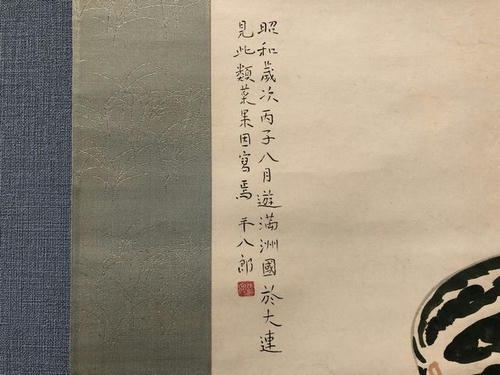 昭和歳次丙子八月遊満洲國於大連
見此類菜果因寫焉 平八郎